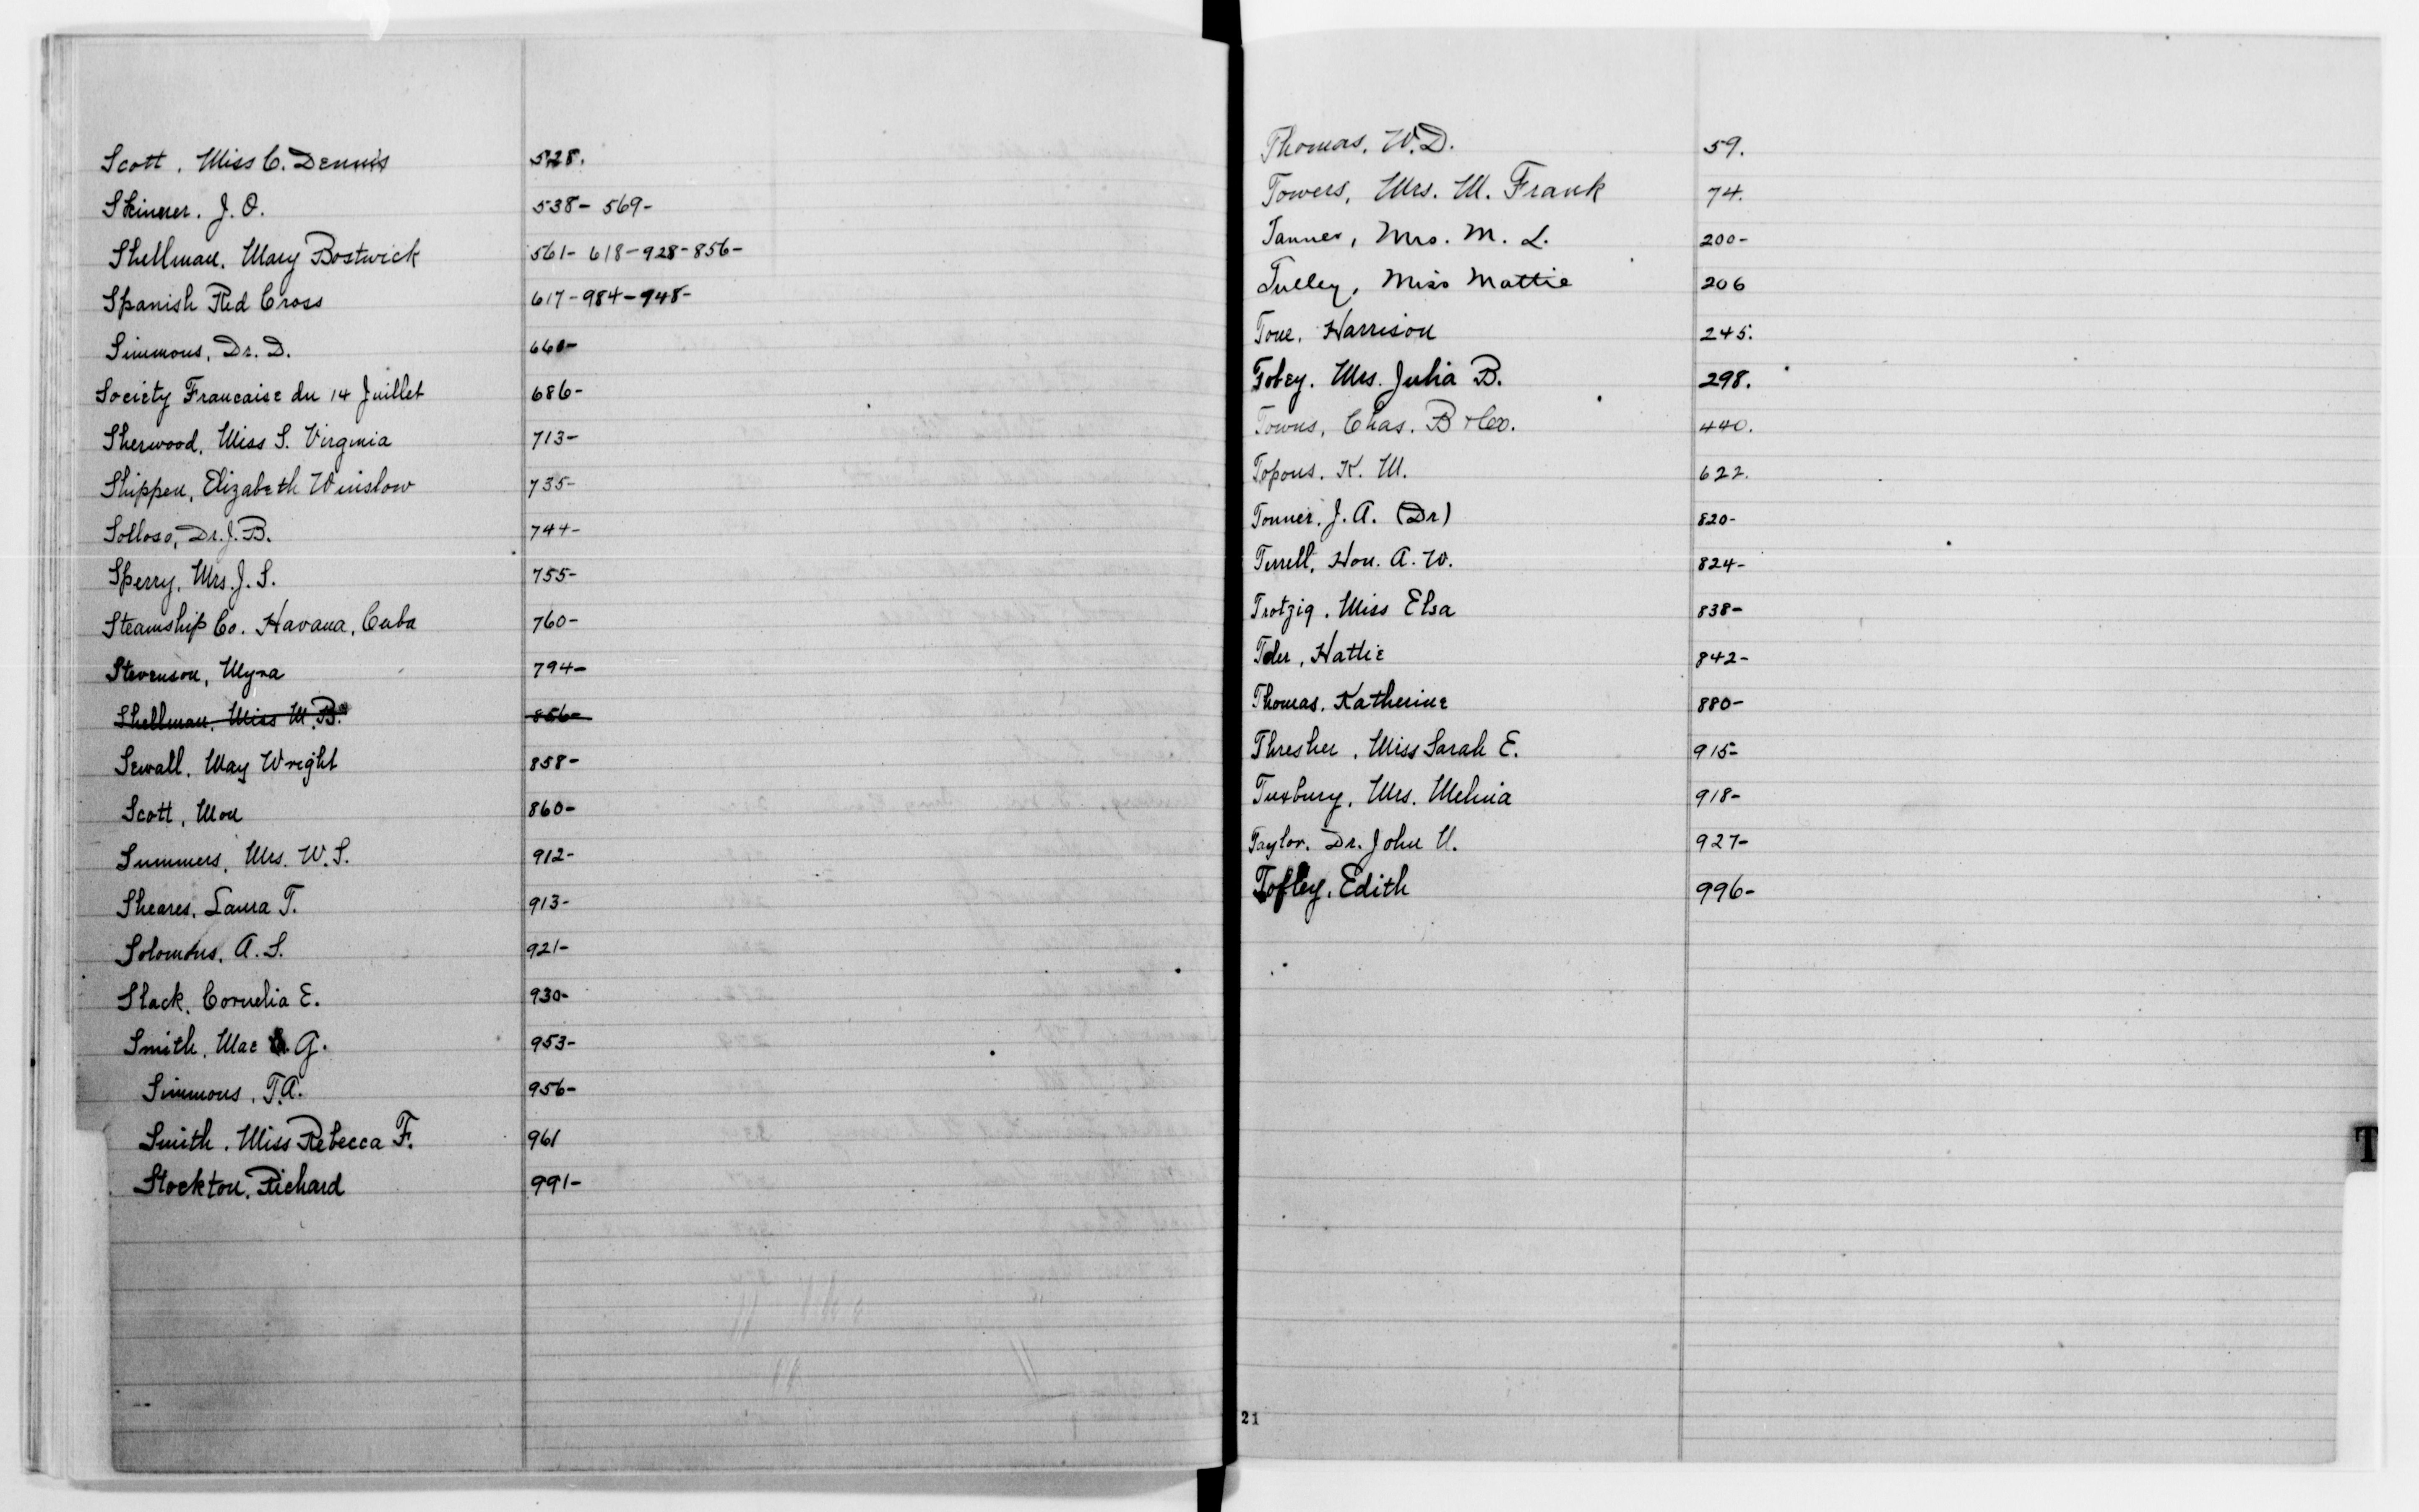 Scott, Miss C. Dennis 528.
Skinner, J. O. 538- 569-
Shellman, Mary Bostwick 561- 618-928-856-
Spanish Red Cross 617-984-948-
Simmons, Dr. D. 660-
Society Francaise du 14 Juillet 686-
Sherwood, Miss S. Virginia 713-
Shippen, Elizabeth Winslow 735-
Solloso, Dr. J. B. 744-
Sperry, Mrs. J. S. 755-
Steamship Co. Havana, Cuba 760-
Stevenson, Myra 794-
Shellman, Miss M. B. 856-
Sewall, May Wright 858-
Scott, Mon 860-
Summers, Mrs. W. S. 912-
Sheares, Laura T. 913-
Solomons, A. S. 921-
Slack, Cornelia E. 930-
Smith, Mae G. 953-
Simmons, T. A. 956-
Smith, Miss Rebecca F. 961
Stockton, Richard 991-
Thomas, W. D. 59.
Towers, Mrs. M. Frank 74.
Tanner, Mrs. M. L. 200-
Tulley, Miss Mattie 206
Tone, Harrison 245.
Tobey, Mrs. Julia B. 298.
Towns, Chas. B + Co. 440.
Topous, K. M. 622.
Tonner, J. A. (Dr) 820-
Terrell, Hon. A. W. 824-
Trotzig, Miss Elsa 838-
Toler, Hattie 842-
Thomas, Katherine 880-
Thresher, Miss Sarah E. 915-
Tuxbury, Mrs. Melvia 918-
Taylor, Dr. John U. 927-
Tofley, Edith 996-
T
21